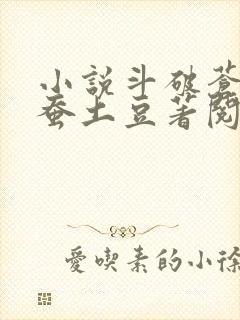 小說斗破蒼
蚕土豆著閱
愛喫素的小徐